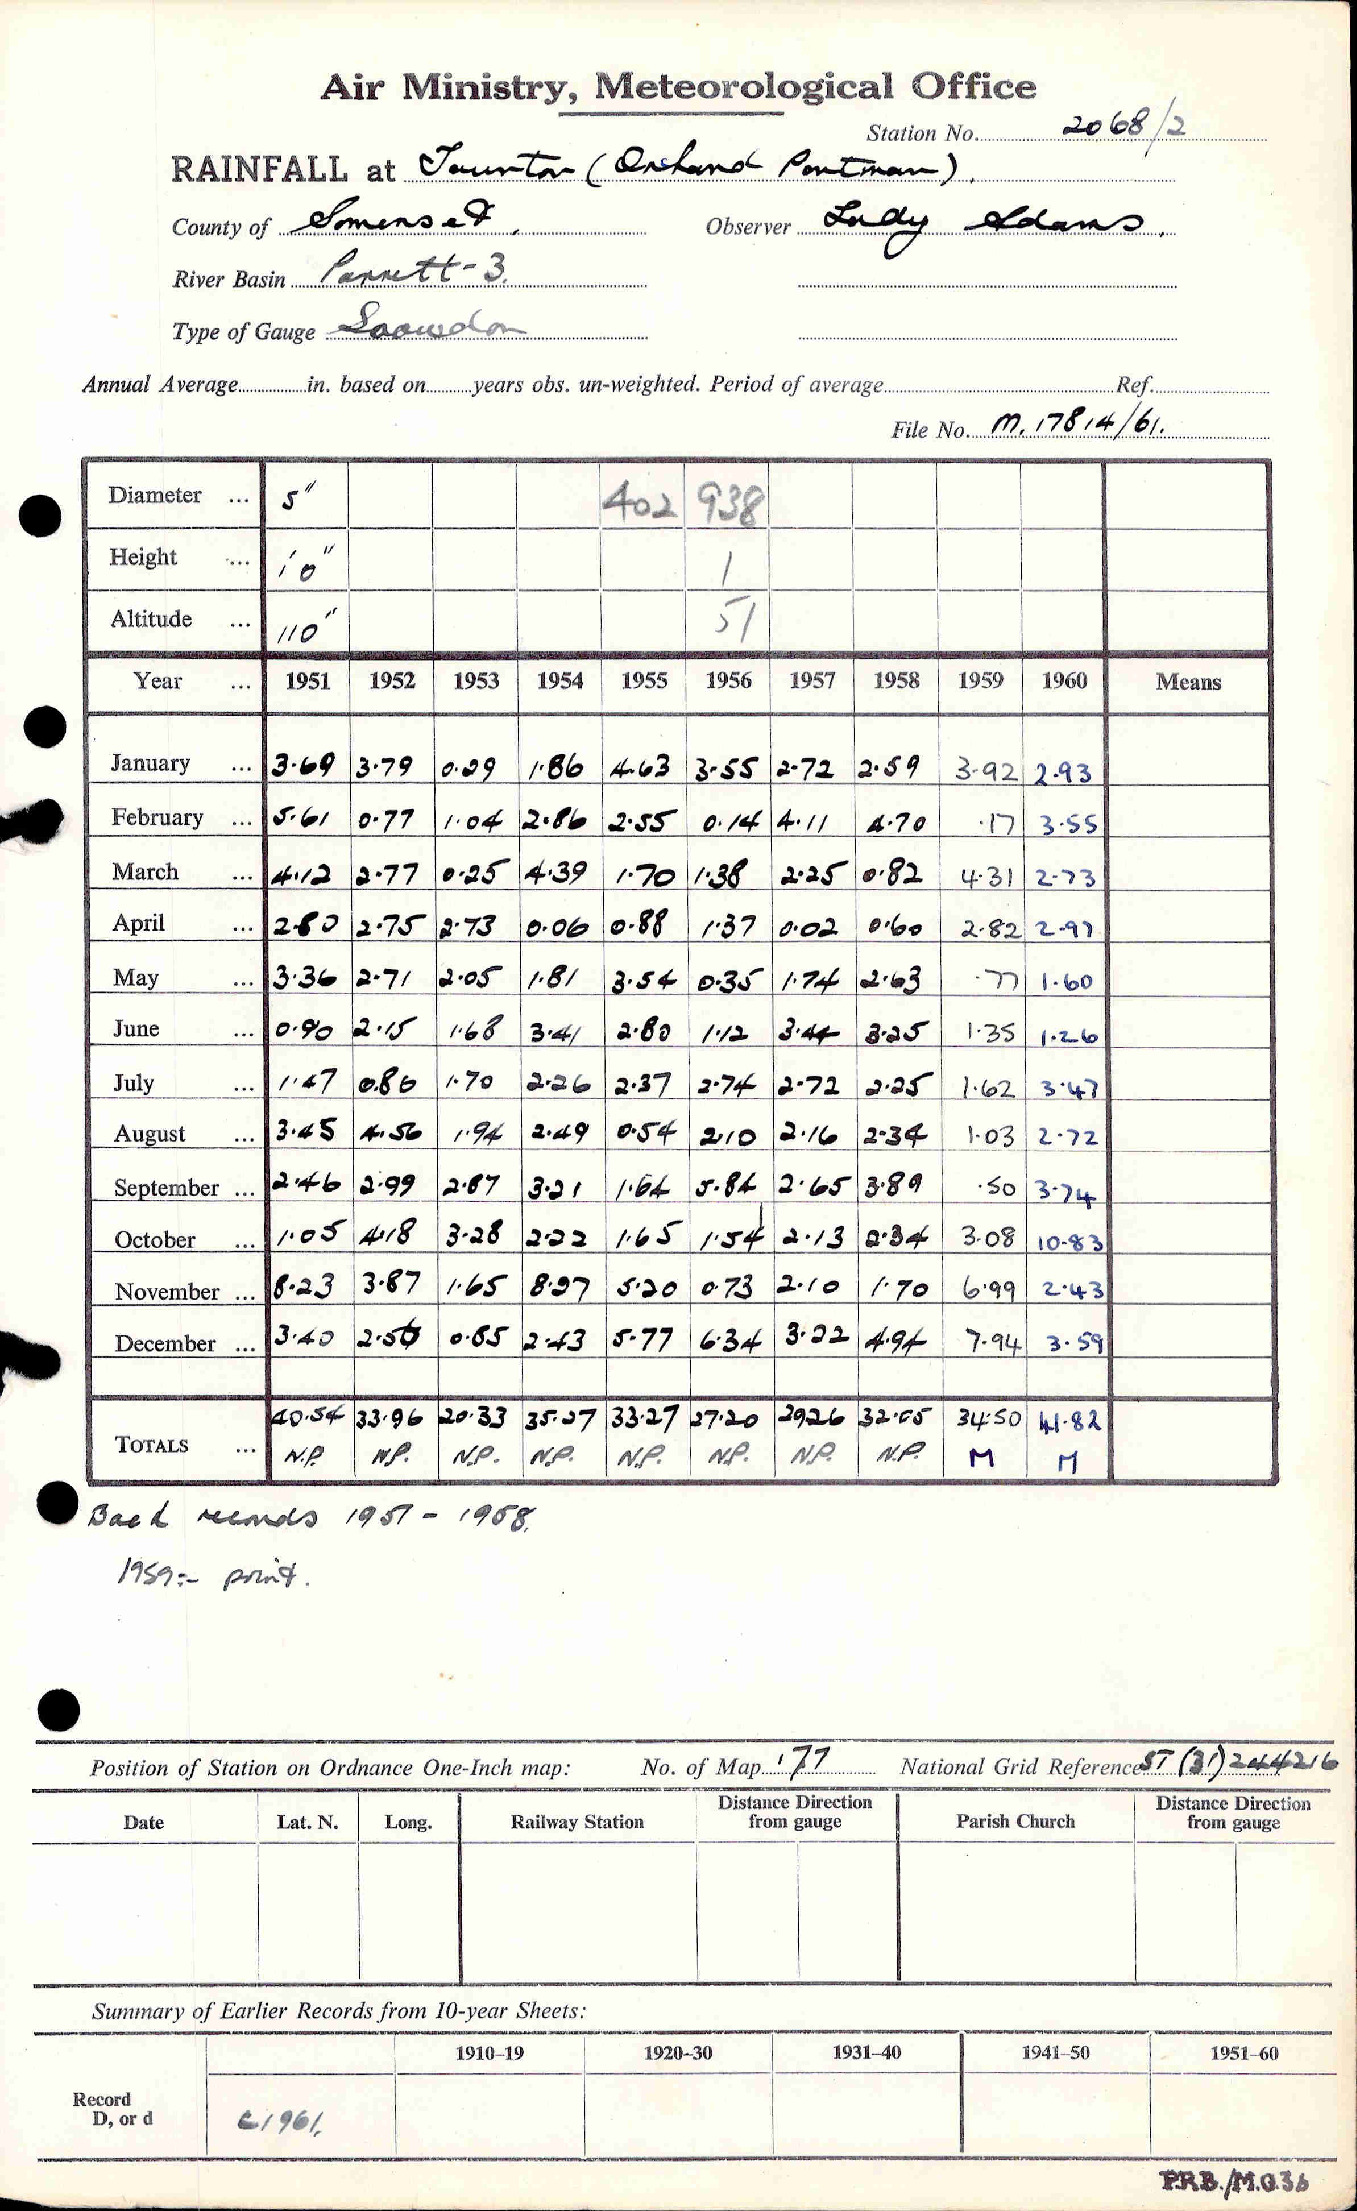 Air Ministry, Meteorological Office
Station No. 2068/2
RAINFALL at Taunton (Orchard Portman).
County of Somerset. Observer Lady Adams.
River Basin Parrett-3.
Type of Gauge Snowdon
Annual Average in. based on years obs. un-weighted. Period of average Ref.
File No. M.17814/61.
Diameter ... 5" 402 938
Height ... 1'0" 1
Altitude ... 110" 51
Year ... 1951 1952 1953 1954 1955 1956 1957 1958 1959 1960 Means
January ... 3·69 3·79 0·29 1·86 4·63 3·55 2·72 2·59 3·92 2·93
February ... 5·61 0·77 1·04 2·86 2·55 0·14 4·11 4·70 ·17 3·55
March ... 4·12 2·77 0·25 4·39 1·70 1·38 2·25 0·82 4·31 2·73
April ... 2·80 2·75 2·73 0·06 0·88 1·37 0·02 0·60 2·82 2·97
May ... 3·36 2·71 2·05 1·81 3·54 0·35 1·74 2·63 ·77 1·60
June ... 0·90 2·15 1·68 3·41 2·80 1·12 3·44 3·25 1·35 1·26
July ... 1·47 0·86 1·70 2·26 2·37 2·74 2·72 2·25 1·62 3·47
August ... 3·45 4·56 1·94 2·49 0·54 2·10 2·16 2·34 1·03 2·72
September ... 2·46 2·99 2·87 3·21 1·64 5·84 2·65 3·89 ·50 3·74
October ... 1·05 4·18 3·28 2·22 1·65 1·54 2·13 2·34 3·08 10·83
November ... 8·23 3·87 1·65 8·27 5·20 0·73 2·10 1·70 6·99 2·43
December ... 3·40 2·56 0·85 2·43 5·77 6·34 3·22 4·94 7·94 3·59
TOTALS ... 40·54 33·96 20·33 35·27 33·27 27·20 29·26 32·05 34·50 41·82
N.P. N.P. N.P. N.P. N.P. N.P. N.P. N.P. M M
Back records 1951 - 1958.
1959:- print.
Position of Station on Ordnance One-Inch map: No. of Map 177 National Grid Reference ST (31) 244216
Date Lat. N. Long. Railway Station Distance Direction from gauge Parish Church Distance Direction from gauge
Summary of Earlier Records from 10-year Sheets:
1910–19 1920–30 1931–40 1941–50 1951–60
Record
D, or d c1961.
P.R.B./M.O.36